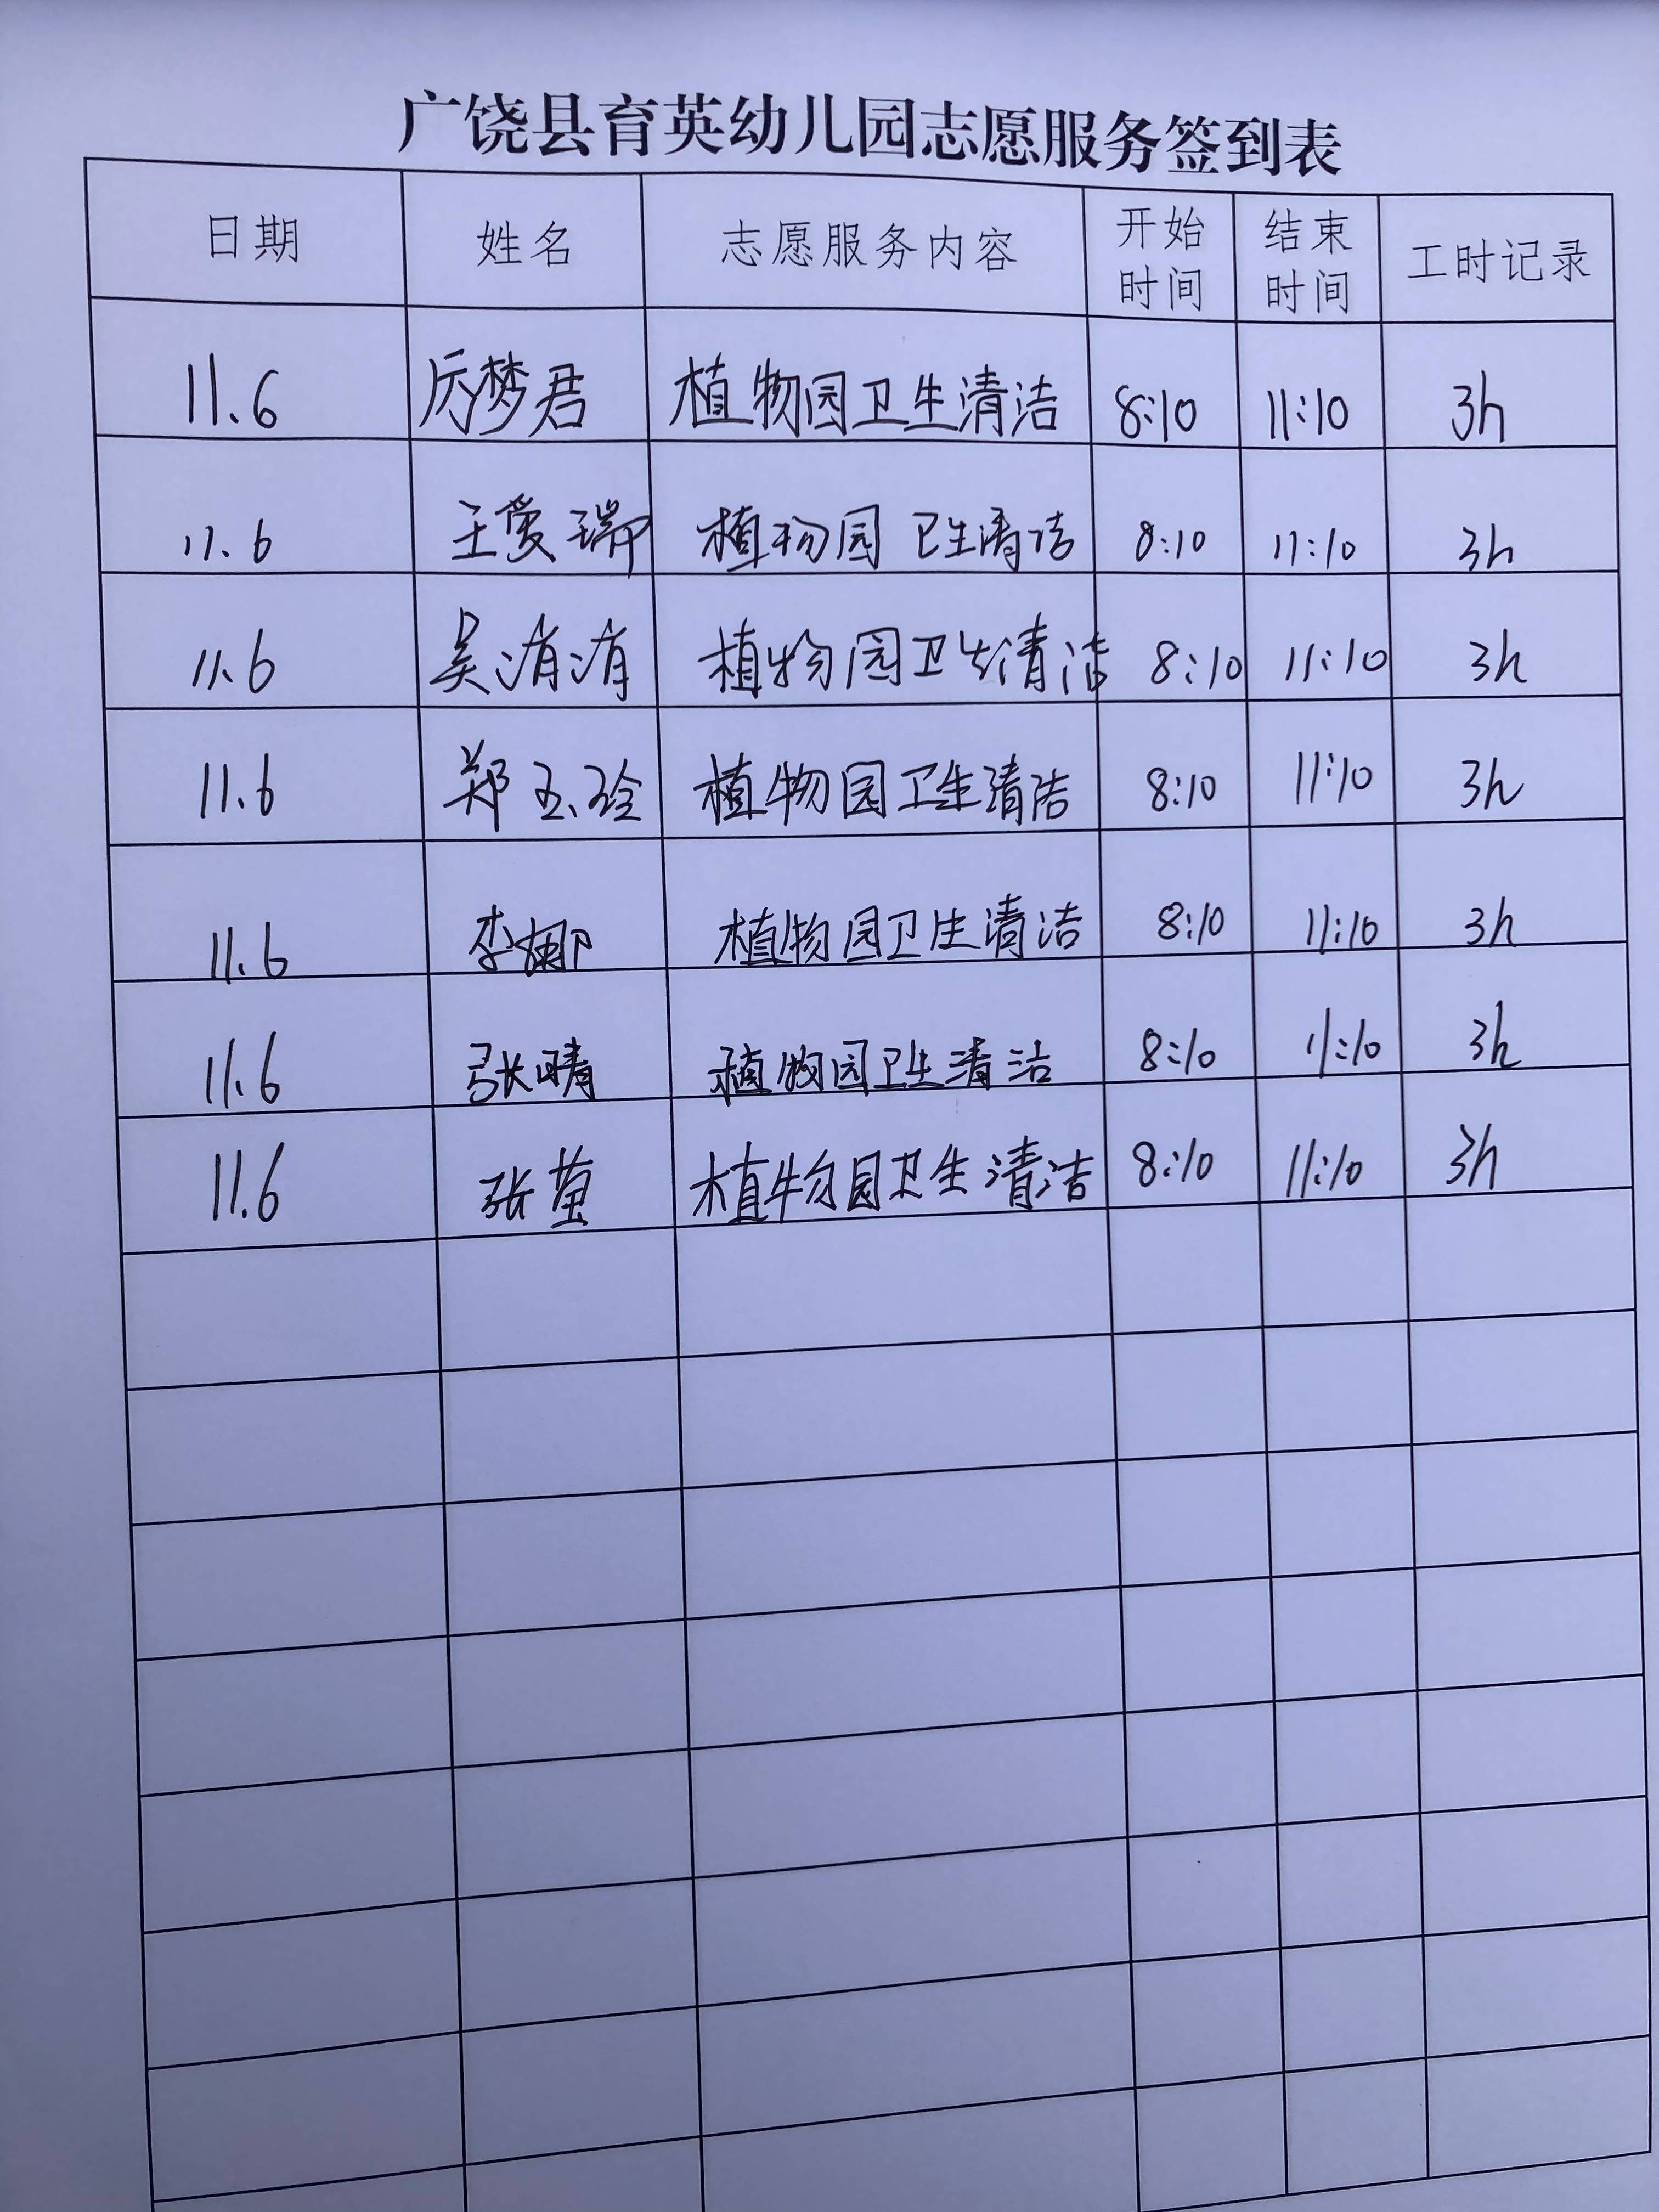 广饶县育英幼儿园志愿服务签到表
日期 姓名 志愿服务内容 开始时间 结束时间 工时记录
11.6 厉梦君 植物园卫生清洁 8:10 11:10 3h
11.6 王爱瑞 植物园卫生清洁 8:10 11:10 3h
11.6 吴清清 植物园卫生清洁 8:10 11:10 3h
11.6 郑玉玲 植物园卫生清洁 8:10 11:10 3h
11.6 李娜 植物园卫生清洁 8:10 11:10 3h
11.6 张晴 植物园卫生清洁 8:10 11:10 3h
11.6 张萤 植物园卫生清洁 8:10 11:10 3h